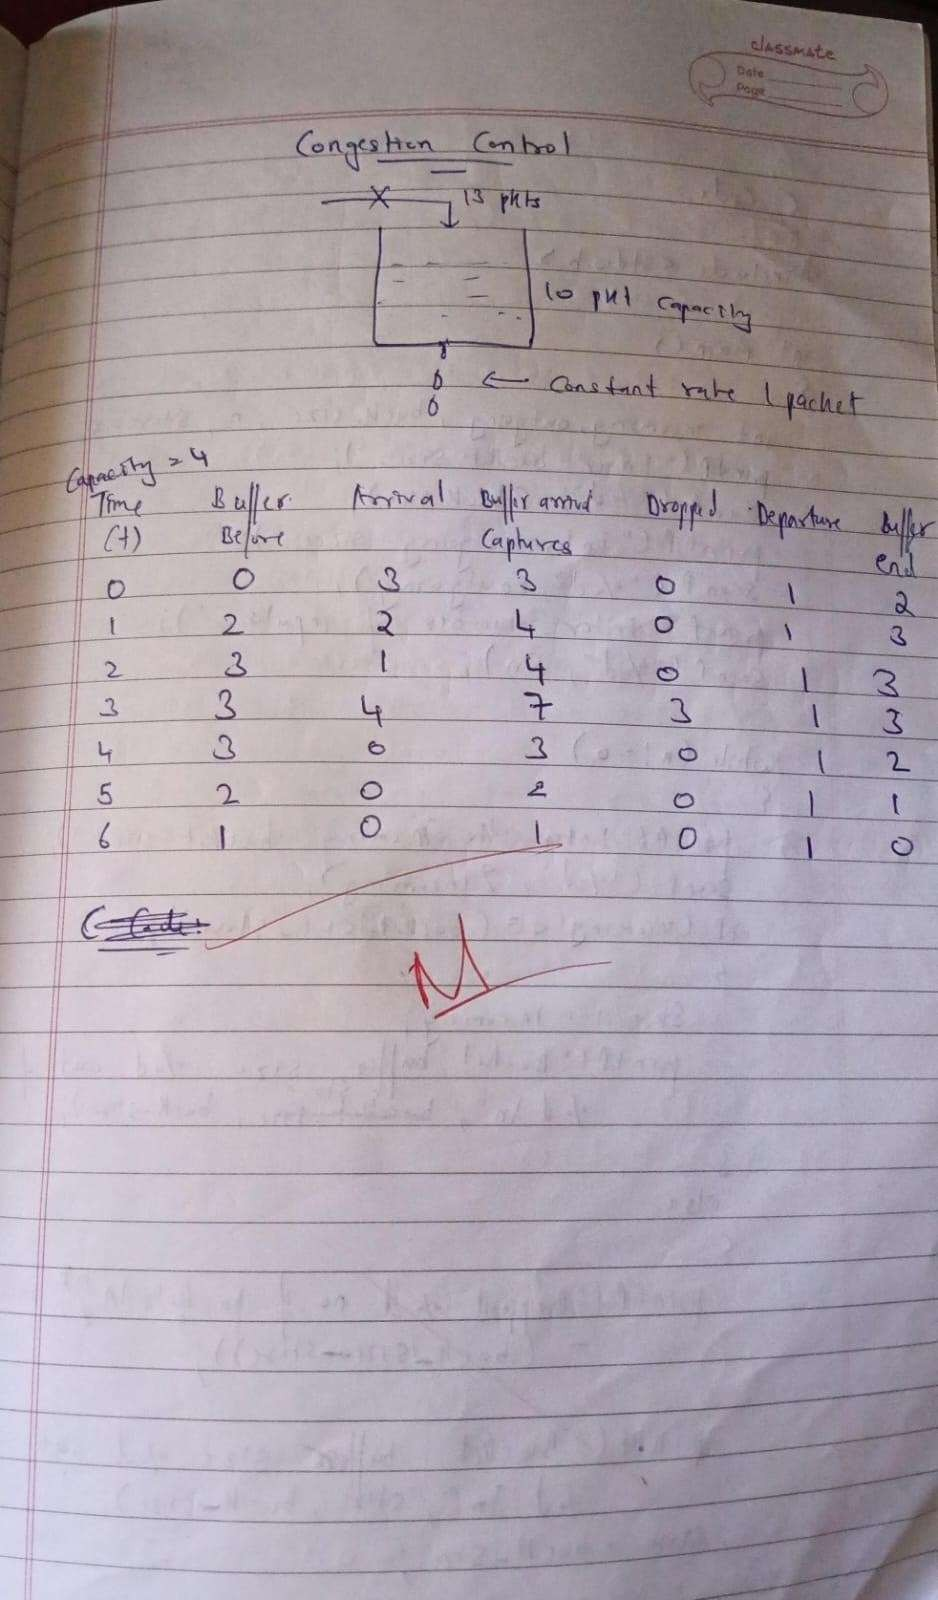 classmate
Date
Page
Congestion Control
13 pkts
10 pkt capacity
← Constant rate 1 packet
Capacity = 4
Time Buffer Arrival Buffer arrived Dropped Departure Buffer
(t) Before Captures end
0 0 3 3 0 1 2
1 2 2 4 0 1 3
2 3 1 4 0 1 3
3 3 4 7 3 1 3
4 3 0 3 0 1 2
5 2 0 2 0 1 1
6 1 0 1 0 1 0